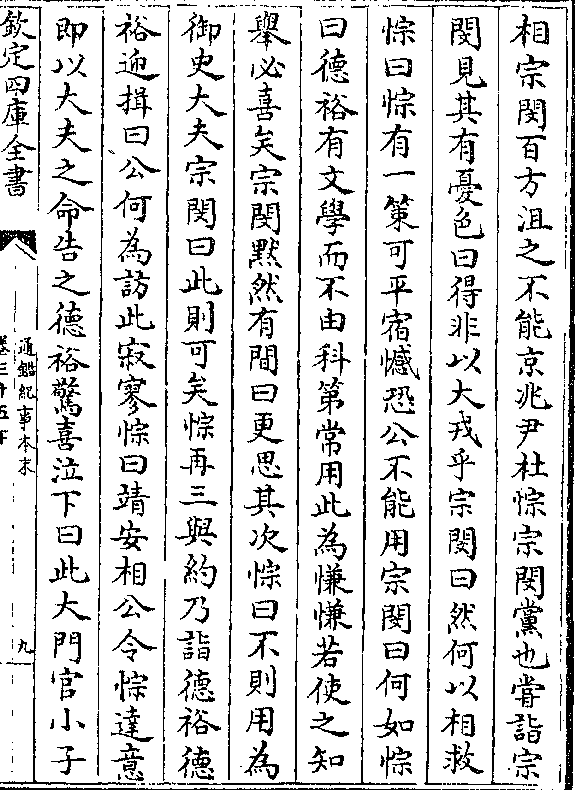 相宗閔百方沮之不能京兆尹杜悰宗閔黨也嘗詣宗
閔見其有憂色曰得非以大戎乎宗閔曰然何以相救
悰曰悰有一策可平宿憾恐公不能用宗閔曰何如悰
曰德裕有文學而不由科第常用此為慊慊若使之知
舉必喜矣宗閔黙然有間曰更思其次悰曰不則用為
御史大夫宗閔曰此則可矣悰再三與約乃詣德裕德
裕迎揖曰公何為訪此寂寥悰曰靖安相公令悰達意
即以大夫之命告之德裕驚喜泣下曰此大門官小子
欽定四庫全書
通鑑紀事本末
卷三十五下
九